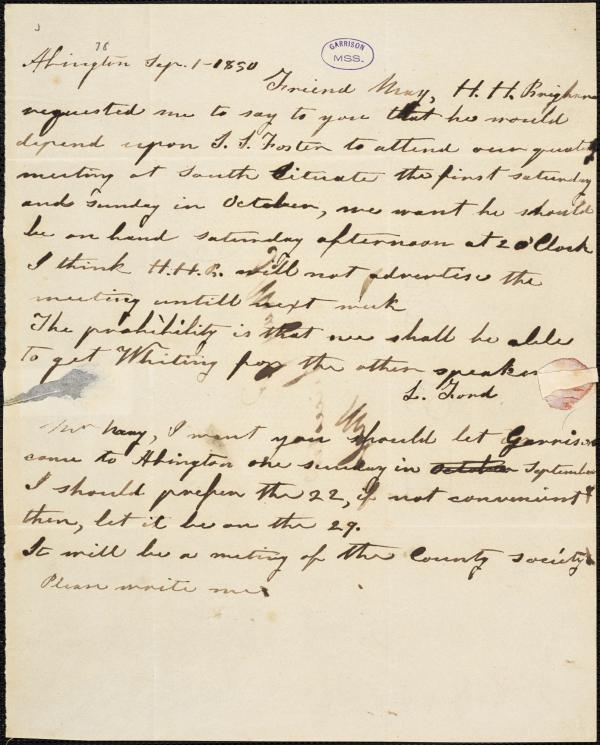 78
GARRISON
MSS.
Abington Sep. 1- 1850
Friend May, H. H. Brigham
requested me to say to you that he would
depend upon S. S. Foster to attend our quately
meeting at South Situate the first saturday
and sunday in October, we want he should
be on hand saturday afternoon at 2 o'Clock
I think H. H. B. will not advertise the
meeting untill next week
The prohibility is that we shall be able
to get Whiting for the other speaker
L. Ford
Mr May, I want you should let Garrison
come to Abington one sunday in october September
I should prefer the 22, if not convenient
then, let it be on the 29.
It will be a meting of the County society
Please write me